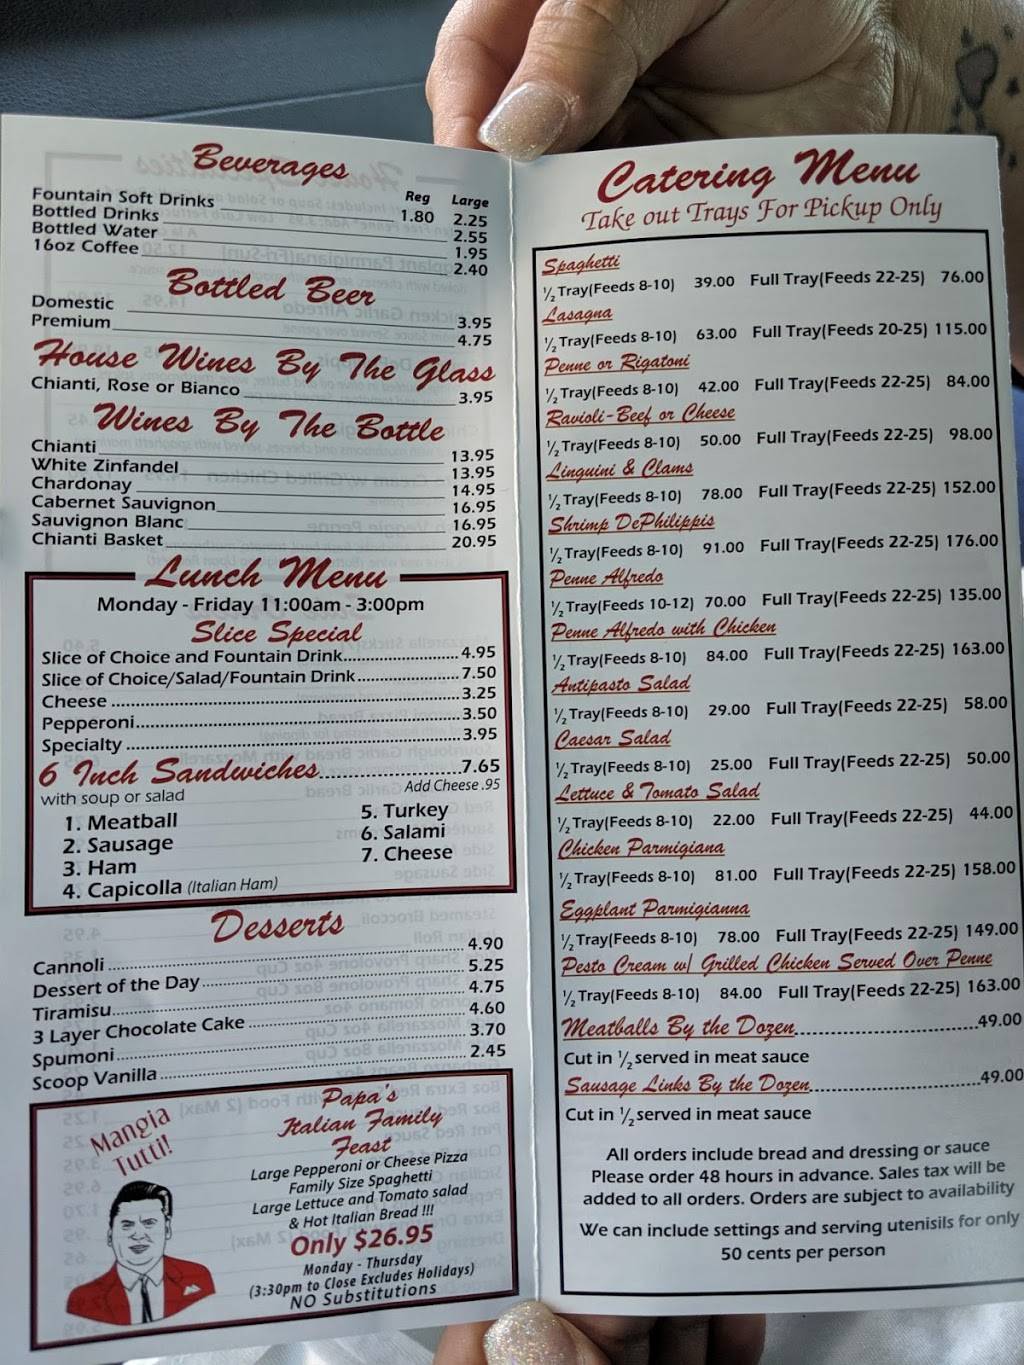 Beverages
Reg Large
Fountain Soft Drinks 1.80 2.25
Bottled Drinks 2.55
Bottled Water 1.95
16oz Coffee 2.40
Bottled Beer
Domestic 3.95
Premium 4.75
House Wines By The Glass
Chianti, Rose or Bianco 3.95
Wines By The Bottle
Chianti 13.95
White Zinfandel 13.95
Chardonay 14.95
Cabernet Sauvignon 16.95
Sauvignon Blanc 16.95
Chianti Basket 20.95
Lunch Menu
Monday - Friday 11:00am - 3:00pm
Slice Special
Slice of Choice and Fountain Drink 4.95
Slice of Choice/Salad/Fountain Drink 7.50
Cheese 3.25
Pepperoni 3.50
Specialty 3.95
6 Inch Sandwiches 7.65
with soup or salad Add Cheese .95
1. Meatball 5. Turkey
2. Sausage 6. Salami
3. Ham 7. Cheese
4. Capicolla (Italian Ham)
Desserts
Cannoli 4.90
Dessert of the Day 5.25
Tiramisu 4.75
3 Layer Chocolate Cake 4.60
Spumoni 3.70
Scoop Vanilla 2.45
Mangia
Tutti!
Papa's
Italian Family
Feast
Large Pepperoni or Cheese Pizza
Family Size Spaghetti
Large Lettuce and Tomato salad
& Hot Italian Bread !!!
Only $26.95
Monday - Thursday
(3:30pm to Close Excludes Holidays)
NO Substitutions
Catering Menu
Take out Trays For Pickup Only
Spaghetti
½ Tray(Feeds 8-10) 39.00 Full Tray(Feeds 22-25) 76.00
Lasagna
½ Tray(Feeds 8-10) 63.00 Full Tray(Feeds 20-25) 115.00
Penne or Rigatoni
½ Tray(Feeds 8-10) 42.00 Full Tray(Feeds 22-25) 84.00
Ravioli-Beef or Cheese
½ Tray(Feeds 8-10) 50.00 Full Tray(Feeds 22-25) 98.00
Linguini & Clams
½ Tray(Feeds 8-10) 78.00 Full Tray(Feeds 22-25) 152.00
Shrimp DePhilippis
½ Tray(Feeds 8-10) 91.00 Full Tray(Feeds 22-25) 176.00
Penne Alfredo
½ Tray(Feeds 10-12) 70.00 Full Tray(Feeds 22-25) 135.00
Penne Alfredo with Chicken
½ Tray(Feeds 8-10) 84.00 Full Tray(Feeds 22-25) 163.00
Antipasto Salad
½ Tray(Feeds 8-10) 29.00 Full Tray(Feeds 22-25) 58.00
Caesar Salad
½ Tray(Feeds 8-10) 25.00 Full Tray(Feeds 22-25) 50.00
Lettuce & Tomato Salad
½ Tray(Feeds 8-10) 22.00 Full Tray(Feeds 22-25) 44.00
Chicken Parmigiana
½ Tray(Feeds 8-10) 81.00 Full Tray(Feeds 22-25) 158.00
Eggplant Parmigianna
½ Tray(Feeds 8-10) 78.00 Full Tray(Feeds 22-25) 149.00
Pesto Cream w/ Grilled Chicken Served Over Penne
½ Tray(Feeds 8-10) 84.00 Full Tray(Feeds 22-25) 163.00
Meatballs By the Dozen 49.00
Cut in ½ served in meat sauce
Sausage Links By the Dozen 49.00
Cut in ½ served in meat sauce
All orders include bread and dressing or sauce
Please order 48 hours in advance. Sales tax will be
added to all orders. Orders are subject to availability
We can include settings and serving utenisils for only
50 cents per person